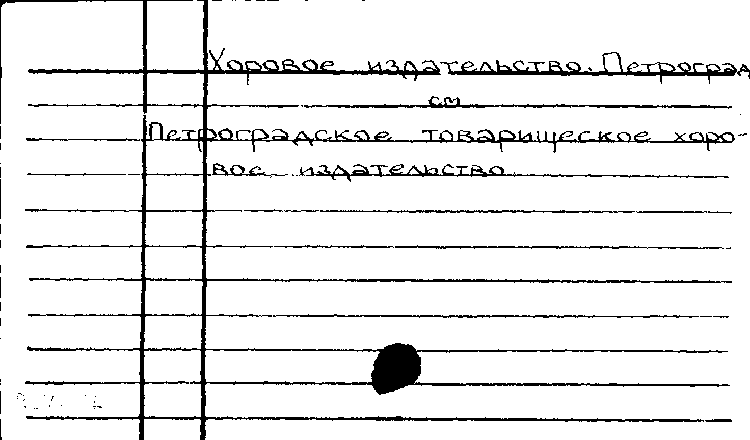 Хоровое издательство. Петроград
см
Петроградское товарищеское хоро-
вое издательство